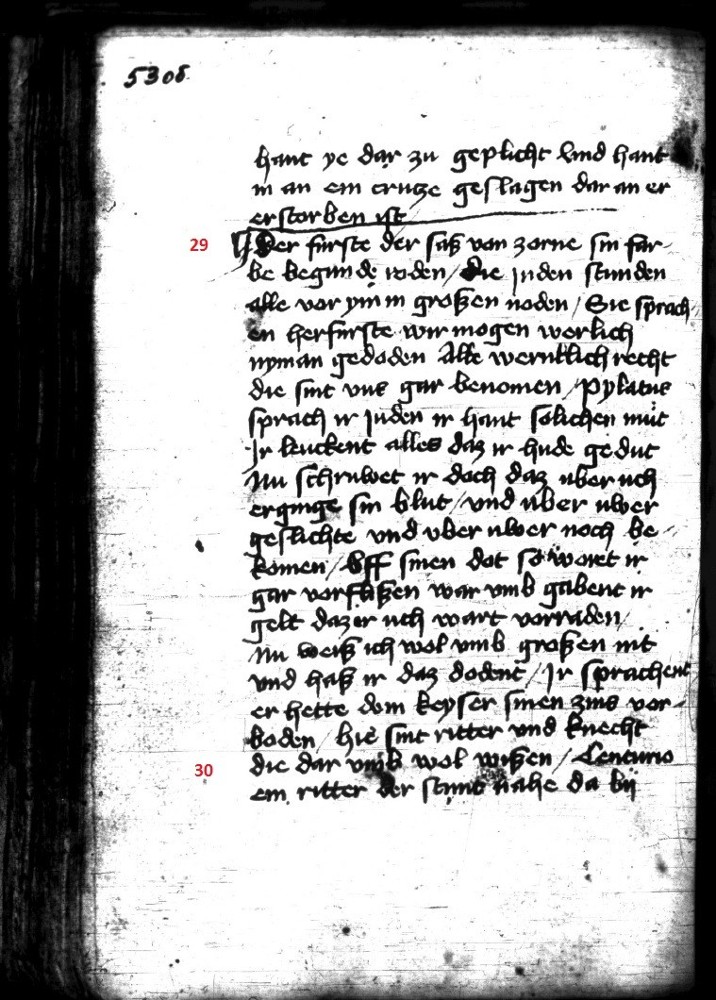 530b
hant ye dar zu geplicht vnd hant
in an ein crutze geslagen dar an er
erstorben ist
29 Der furste der saß von zorne sin far-
be begunde roden / die juden stunden
alle vor ym in großen noden / Sie sprach
en her furste wir mogen werlich
nyman gedoden Alle werntlich recht
die sint vns gar benomen / Pylatus
sprach ir juden ir hant solichen mut
Ir leuckent alles daz ir hude gedut
Nu schruwet ir doch daz uber uch
erginge sin blut / vnd uber uwer
geslichte vnd vber uwer noch be
komen / Uff sinen dot so woret ir
gar vorflißen war vmb gabent ir
gelt daz er uch wart vorraden /
Nu weiß ich wol vmb großen nit
vnd haß ir daz dodent / Ir sprachent
er hette dem keyser sinen zins vor-
boden / hie sint ritter vnd knecht
die dar vmb wol wißen / Centurio
30 ein ritter der stunt nahe da bij